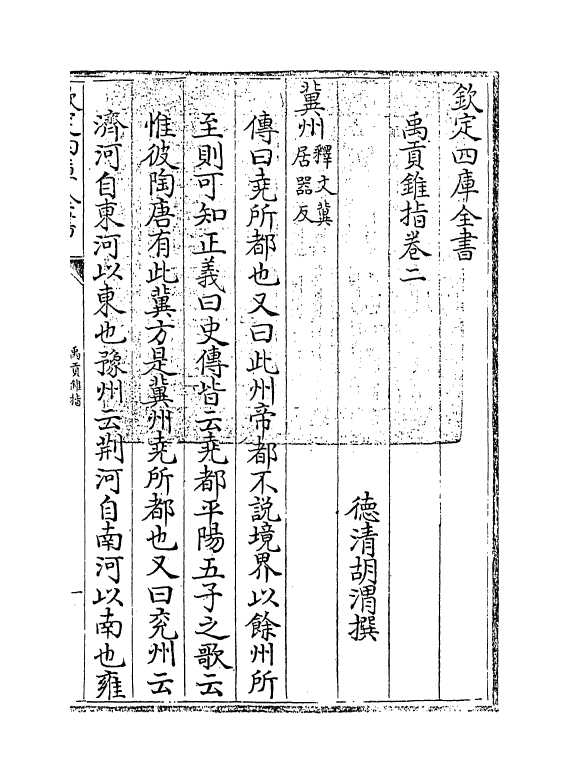 欽定四庫全書
禹貢錐指卷二
德清胡渭撰
冀州釋文冀居器反
傳曰堯所都也又曰此州帝都不説境界以餘州所
至則可知正義曰史傳皆云堯都平陽五子之歌云
惟彼陶唐有此冀方是冀州堯所都也又曰兖州云
濟河自東河以東也豫州云荆河自南河以南也雍
欽定四庫全書
禹貢錐指
一